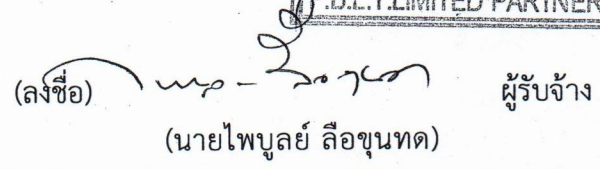 LIMITED PARTNER
(ลงชื่อ) ผู้รับจ้าง
(นายไพบูลย์ ลือขุนทด)